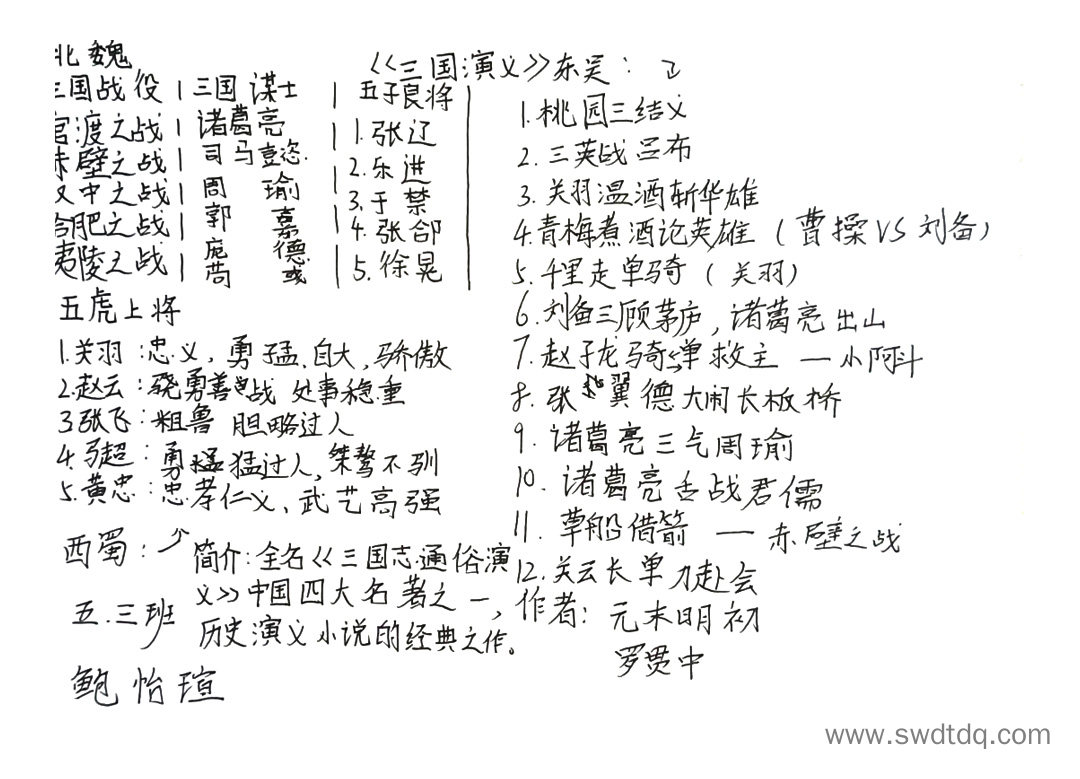 北魏
《三国演义》东吴：
三国战役 三国谋士 五子良将
官渡之战 诸葛亮 1.张辽
赤壁之战 司马懿 2.乐进
汉中之战 周瑜 3.于禁
合肥之战 郭嘉 4.张郃
夷陵之战 庞德 5.徐晃
荀或
五虎上将
1.关羽：忠义，勇猛.自大，骄傲
2.赵云：骁勇善战 处事稳重
3张飞：粗鲁 胆略过人
4.马超：勇猛过人，桀骜不驯
5.黄忠：忠孝仁义、武艺高强
西蜀：
简介：全名《三国志通俗演
义》中国四大名著之一，
历史演义小说的经典之作。
五.三班
鲍怡瑄
1.桃园三结义
2.三英战吕布
3.关羽温酒斩华雄
4.青梅煮酒论英雄（曹操VS刘备）
5.千里走单骑（关羽）
6.刘备三顾茅庐，诸葛亮出山
7.赵子龙单骑救主—小阿斗
8.张翼德大闹长板桥
9.诸葛亮三气周瑜
10.诸葛亮舌战君儒
11.草船借箭——赤壁之战
12.关云长单刀赴会
作者：元末明初
罗贯中
www.swdtdq.com